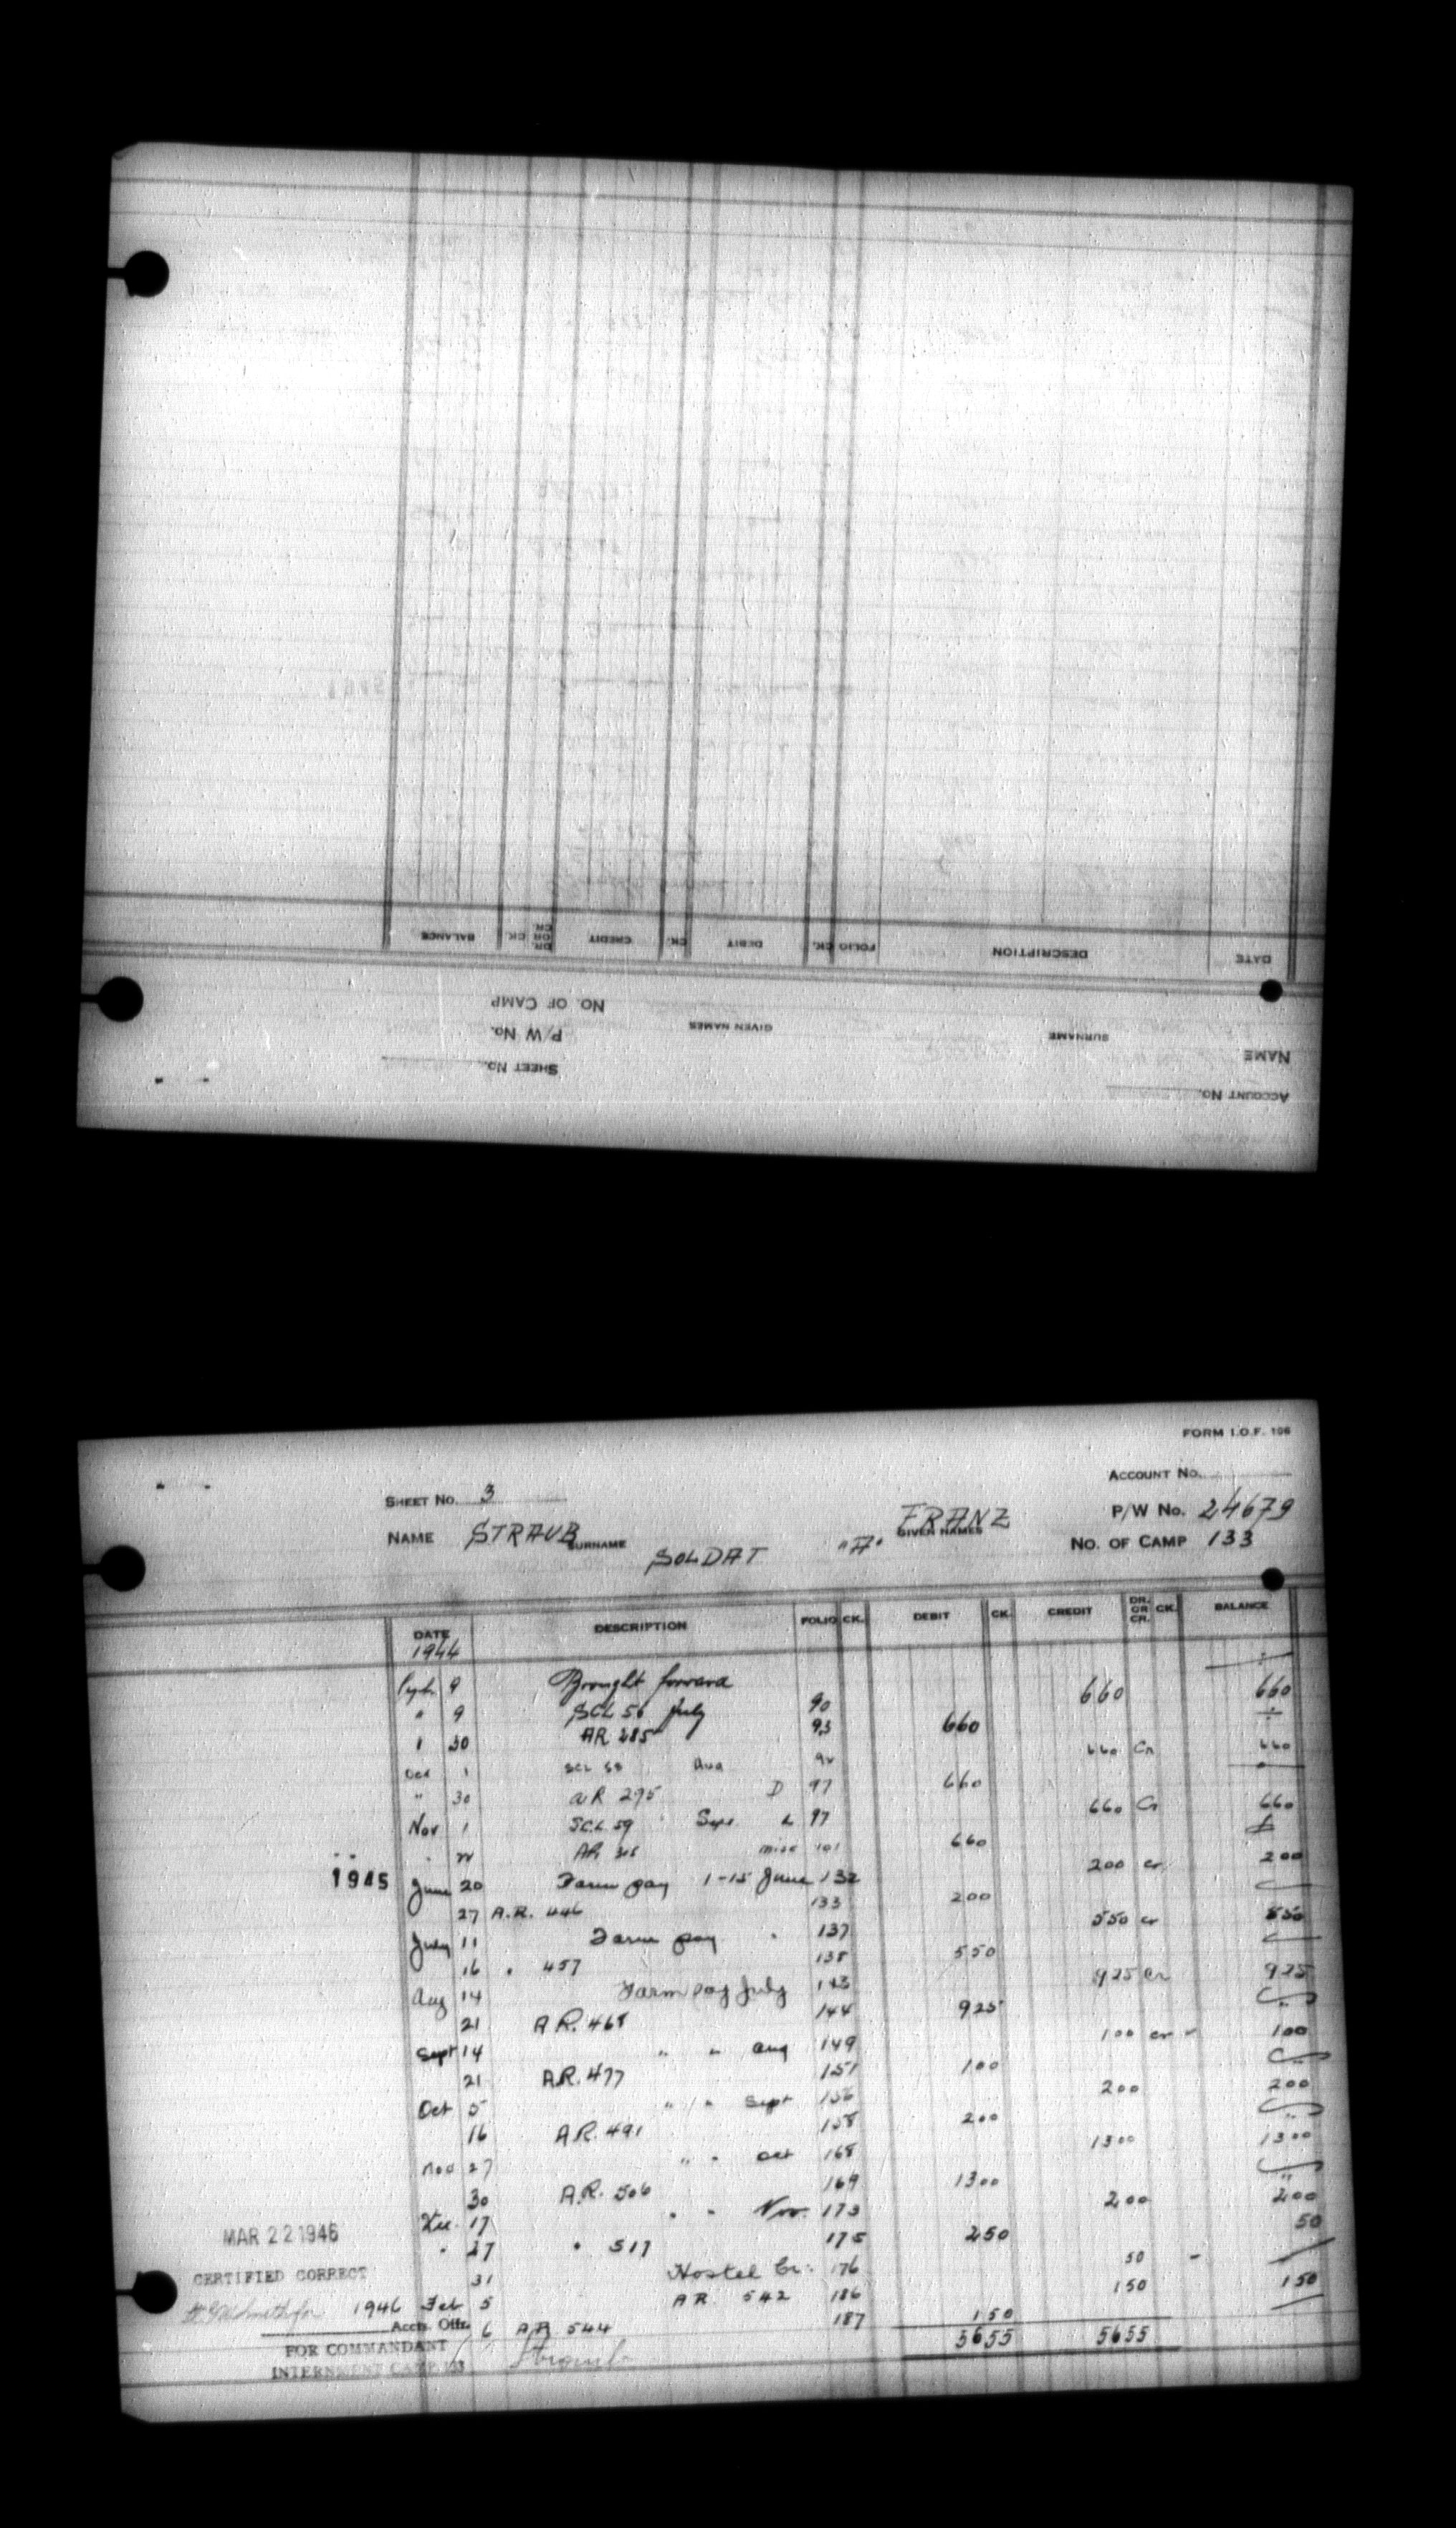 ACCOUNT No.
NAME SURNAME GIVEN NAMES SHEET No.
P/W No.
No. OF CAMP
DATE DESCRIPTION FOLIO CK. DEBIT CK. CREDIT DR. OR CR. CK. BALANCE
FORM I.O.F. 106
ACCOUNT No.
SHEET No. 3
P/W No. 24679
NAME STRAUB SURNAME SOLDAT "A" FRANZ GIVEN NAMES
No. OF CAMP 133
DATE DESCRIPTION FOLIO CK. DEBIT CK. CREDIT DR. OR CR. CK. BALANCE
1944
Sept 9 Brought forward
" 9 SCL 56 July 90 660 660
" 30 AR 285 93 660
Oct 1 SCL 58 Aug 660 Cr 660
" 30 AR 295 D 97 660
Nov 1 SCL 59 Sept L 97 660 Cr 660
AR misc 101 660
1945 June 20 Farm pay 1-15 June 132 200 cr 200
27 A.R. 446 133 200
July 11 Farm pay 137 550 cr 550
16 " 457 138 550
Aug 14 Farm pay July 143 925 cr 925
21 A.R. 468 144 925
Sept 14 " " Aug 149 100 cr - 100
21 A.R. 477 151 100
Oct 5 " " Sept 156 200 200
16 A.R. 491 158 200
Nov 27 " " Oct 168 1300 1300
30 A.R. 506 169 1300
Dec. 17 " " Nov. 173 200 200
" 27 " 517 175 250 50
31 Hostel Cr. 176 50 -
1946 Feb 5 AR 542 186 150 150
6 AR 544 187 150
5655 5655
MAR 22 1946
CERTIFIED CORRECT
Accts. Offr.
FOR COMMANDANT
INTERNMENT CAMP 133